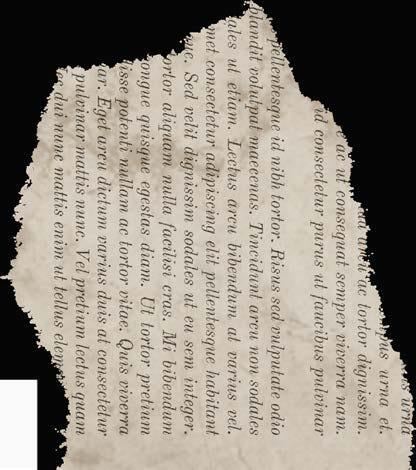 urna
urna et.
ac tortor dignissim.
ac ut consequat semper viverra nam.
id consectetur purus ut faucibus pulvinar
pellentesque id nibh tortor. Risus sed vulputate odio
blandit volutpat maecenas. Tincidunt arcu non sodales
ales ut etiam. Lectus arcu bibendum at varius vel.
met consectetur adipiscing elit pellentesque habitant
ue. Sed velit dignissim sodales ut eu sem integer.
ortor aliquam nulla facilisi cras. Mi bibendum
ongue quisque egestas diam. Ut tortor pretium
isse potenti nullam ac tortor vitae. Quis viverra
ar. Eget arcu dictum varius duis at consectetur
pulvinar mattis nunc. Vel pretium lectus quam
dui nunc mattis enim ut tellus eleme